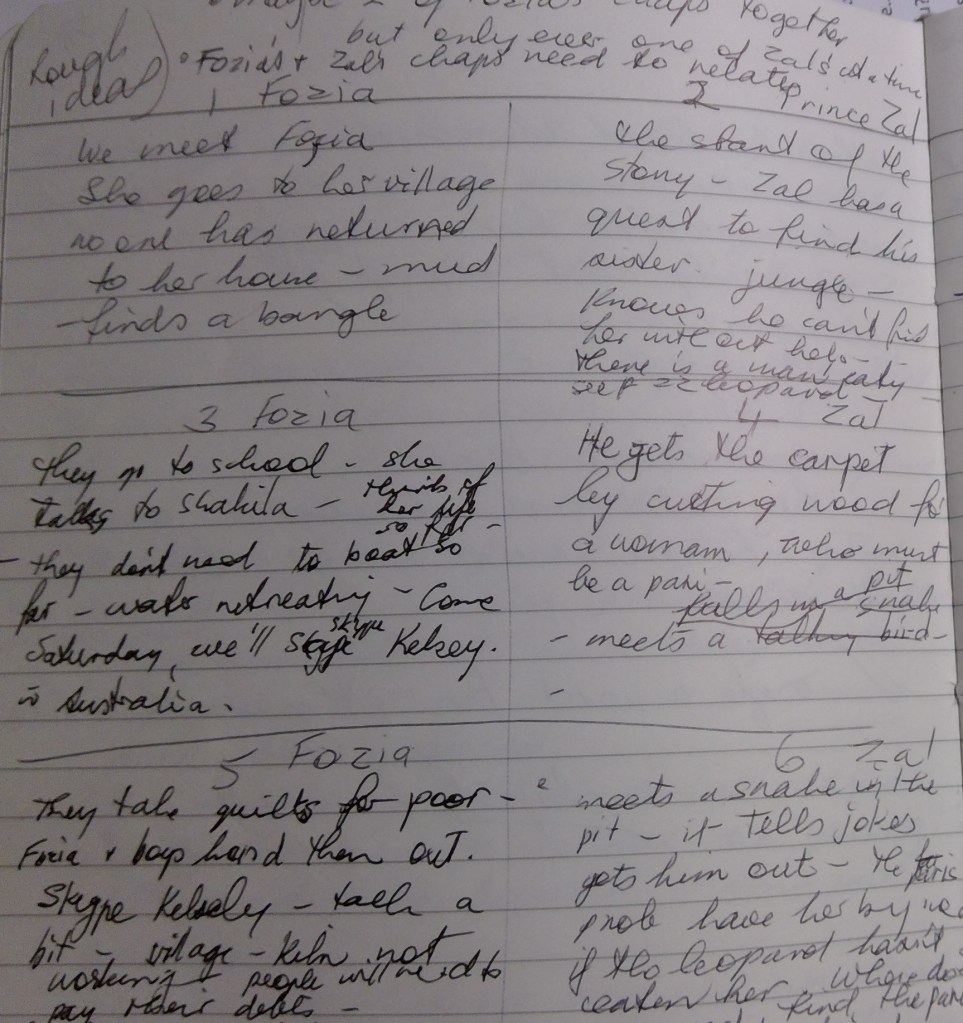 maybe 2 of Fozia's chaps together
but only ever one of Zal's at a time
Rough ideas)
• Fozia's + Zal's chaps need to relate
1 Fozia
We meet Fozia
She goes to her village
no one has returned
to her house - mud
- finds a bangle
2 Prince Zal
the start of the
story - Zal has a
quest to find his
sister. jungle -
Knows he can't find
her without help -
there is a man eating
leopard -
3 Fozia
they go to school - she
talks to Shakila - thinks of
her life
so far -
- they don't need to boat so
far - water retreating - Come
Saturday, we'll skype Kelsey.
in Australia.
4 Zal
He gets the carpet
by cutting wood for
a woman, who must
be a pari -
falls in a pit snake
- meets a talking bird -
-
5 Fozia
They take quilts for poor -
Fozia + boys hand them out.
Skype Kelsely - talk a
bit - village - kiln not
working + people will need to
pay their debts -
6 Zal
meets a snake in the
pit - it tells jokes
gets him out - the paris
prob have her by now
if the leopard hasn't
eaten her. Where do
find the pari